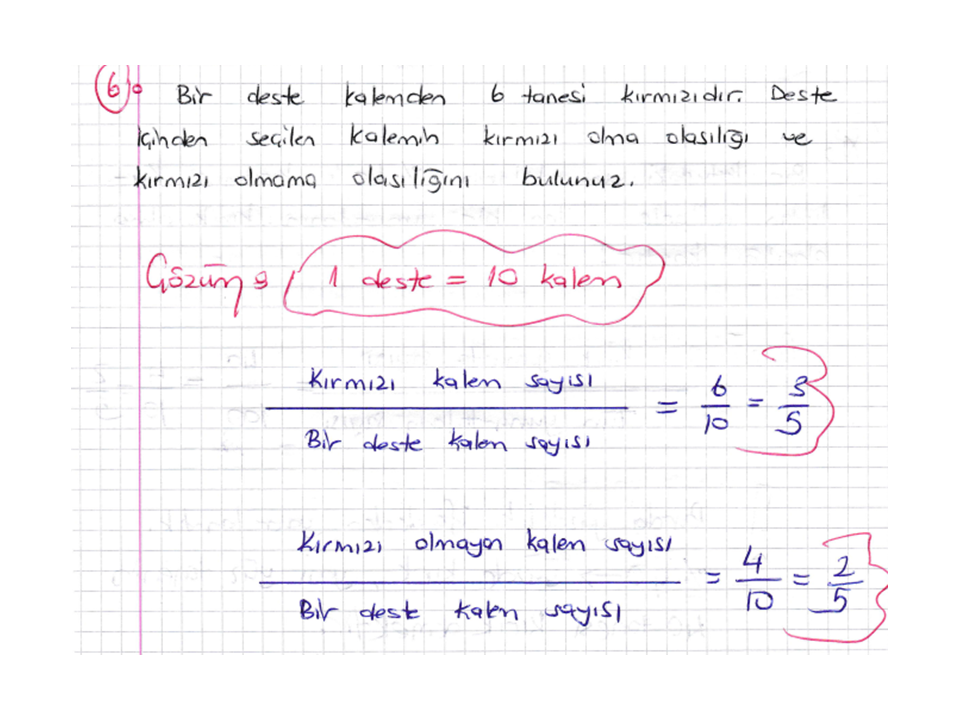 6) Bir deste kalemden 6 tanesi kırmızıdır. Deste
içinden seçilen kalemin kırmızı olma olasılığı ve
kırmızı olmama olasılığını bulunuz.
Çözüm: 1 deste = 10 kalem
Kırmızı kalem sayısı
Bir deste kalem sayısı
= 6/10 = 3/5
Kırmızı olmayan kalem sayısı
Bir deste kalem sayısı
= 4/10 = 2/5